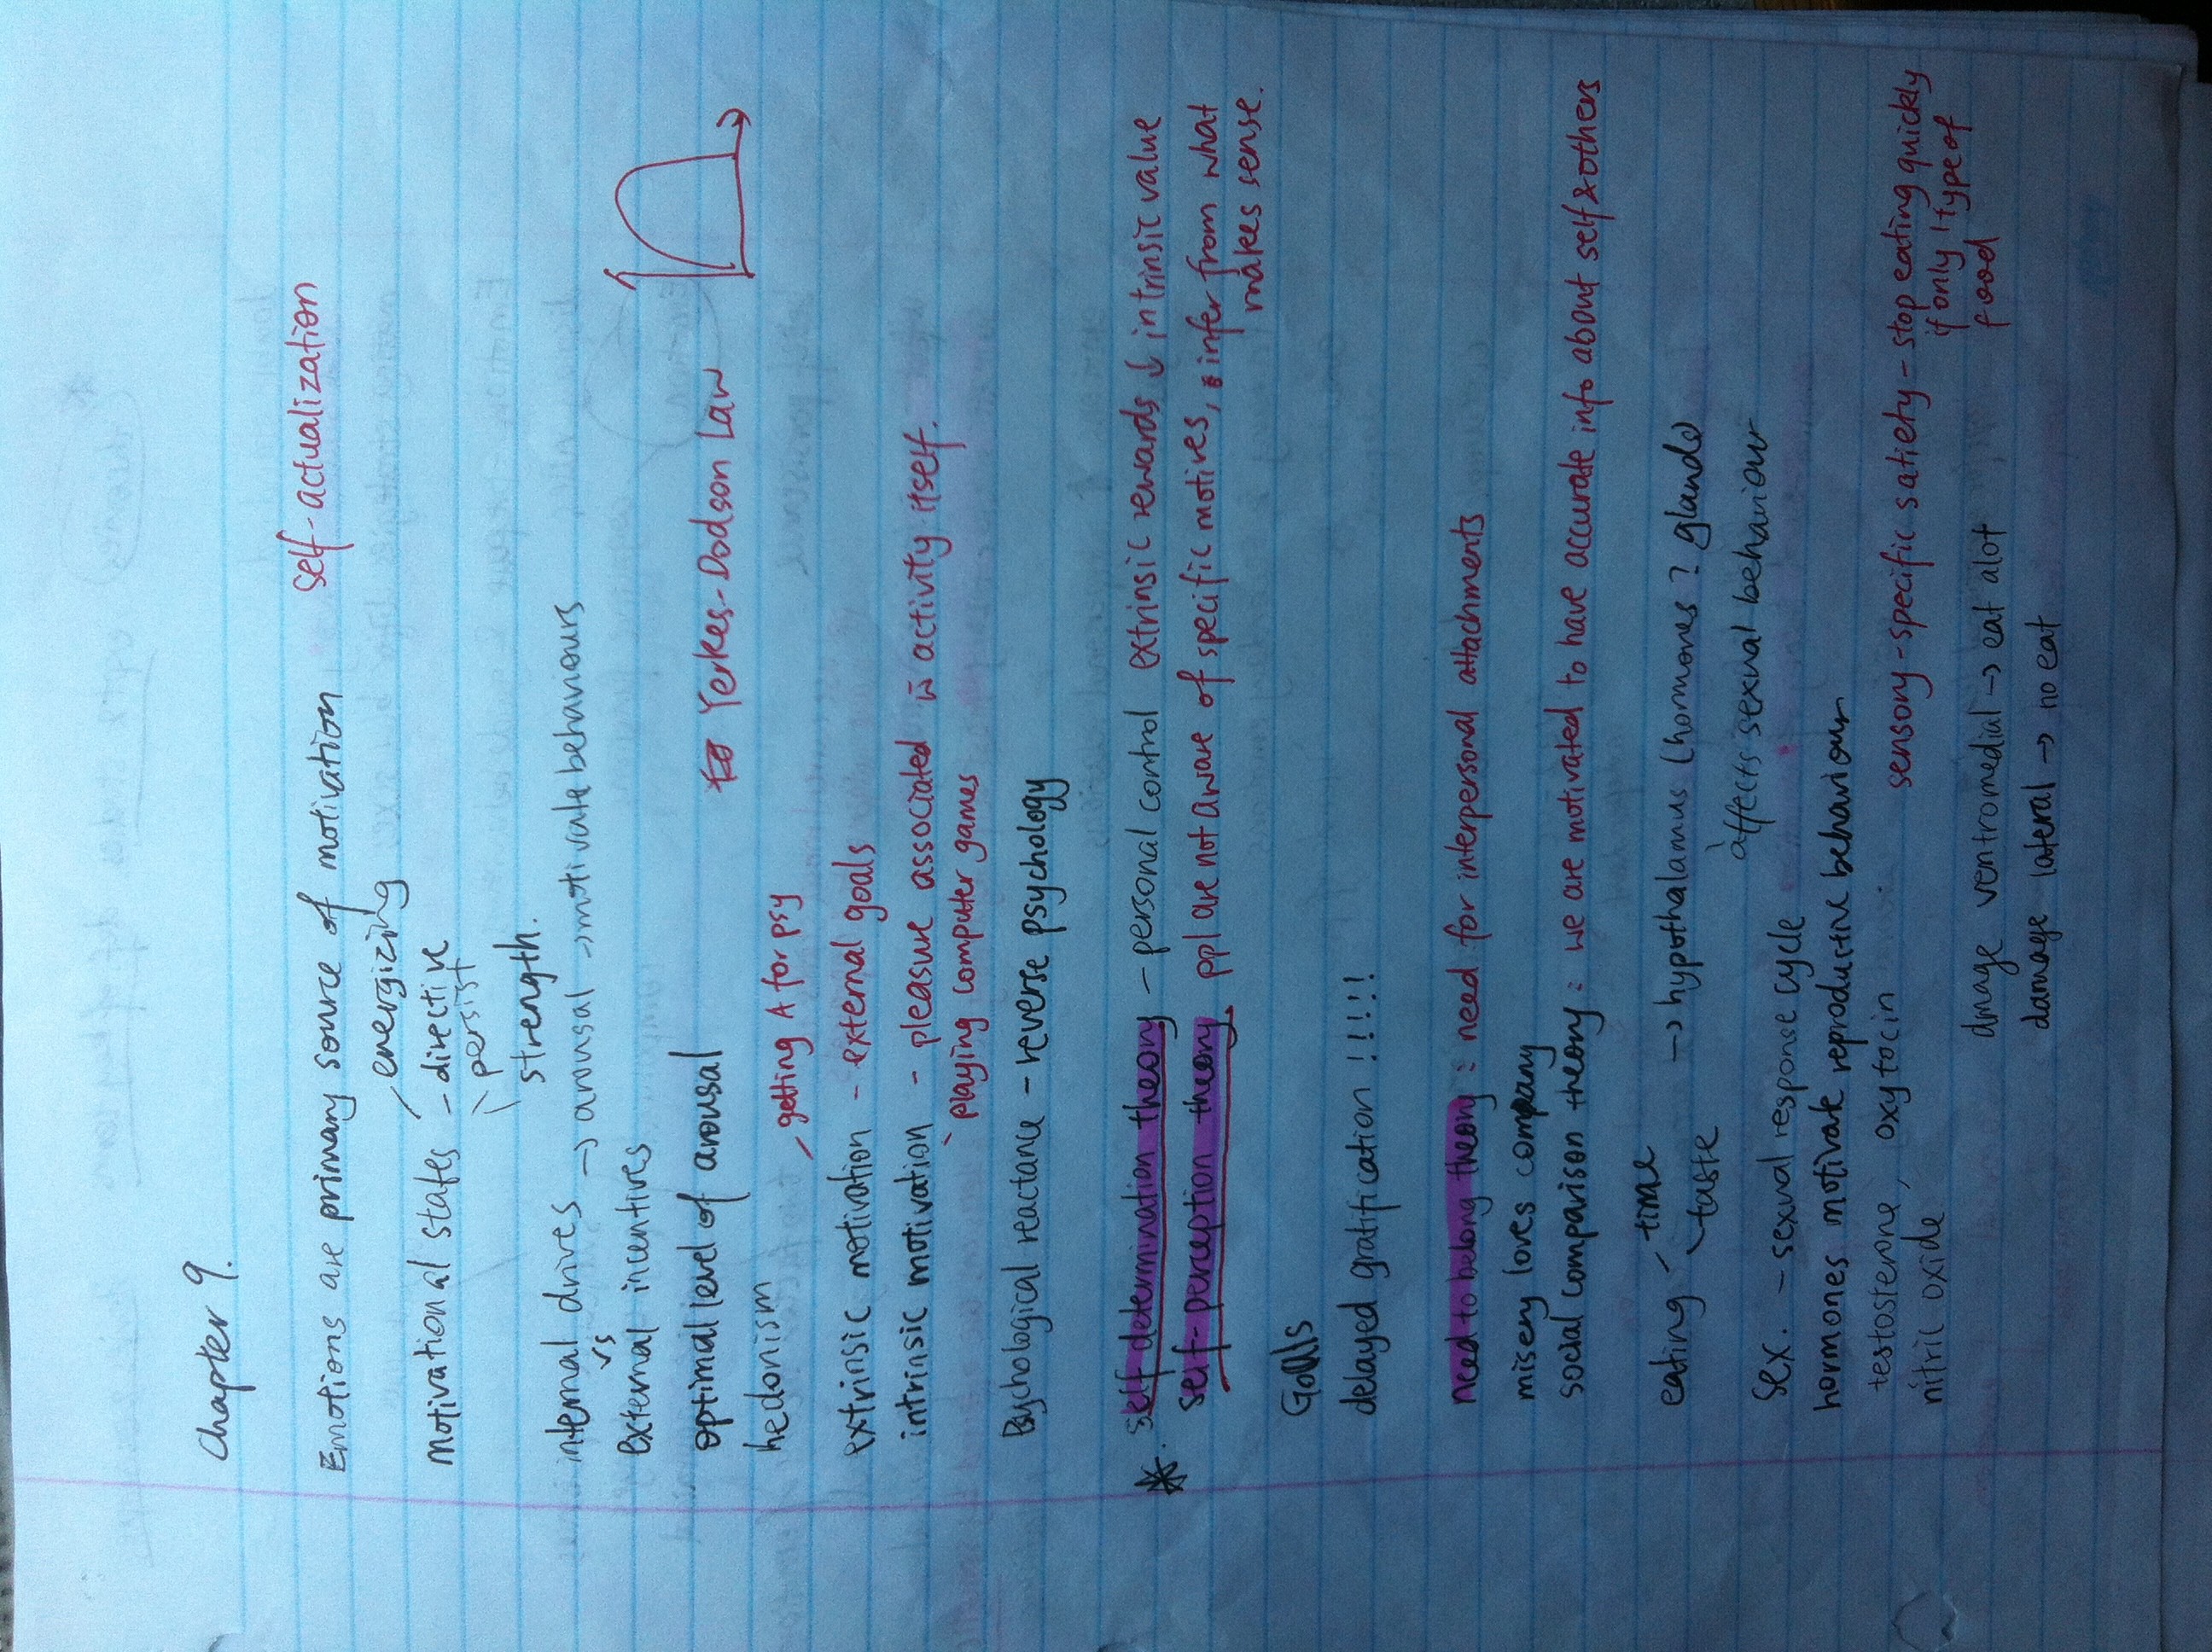 Chapter 9.
Emotions are primary source of motivation self-actualization
energizing
motivational states - directive
persist
strength.
internal drives → arousal → motivate behaviours
vs
external incentives
optimal level of arousal Yerkes-Dodson Law
hedonism
getting A for psy
extrinsic motivation - external goals
intrinsic motivation - pleasure associated w activity itself.
playing computer games
Psychological reactance - reverse psychology
*. self determination theory - personal control extrinsic rewards ↓ intrinsic value
self-perception theory ppl are not aware of specific motives, infer from what
makes sense.
Goals
delayed gratification !!!!!
need to belong theory : need for interpersonal attachments
misery loves company
social comparison theory : we are motivated to have accurate info about self & others
time
eating → hypothalamus (hormones? glands
taste affects sexual behaviour
Sex. - sexual response cycle
hormones motivate reproductive behaviour
testosterone, oxytocin sensory-specific satiety - stop eating quickly
nitric oxide if only 1 type of
food
damage ventromedial → eat alot
damage lateral → no eat